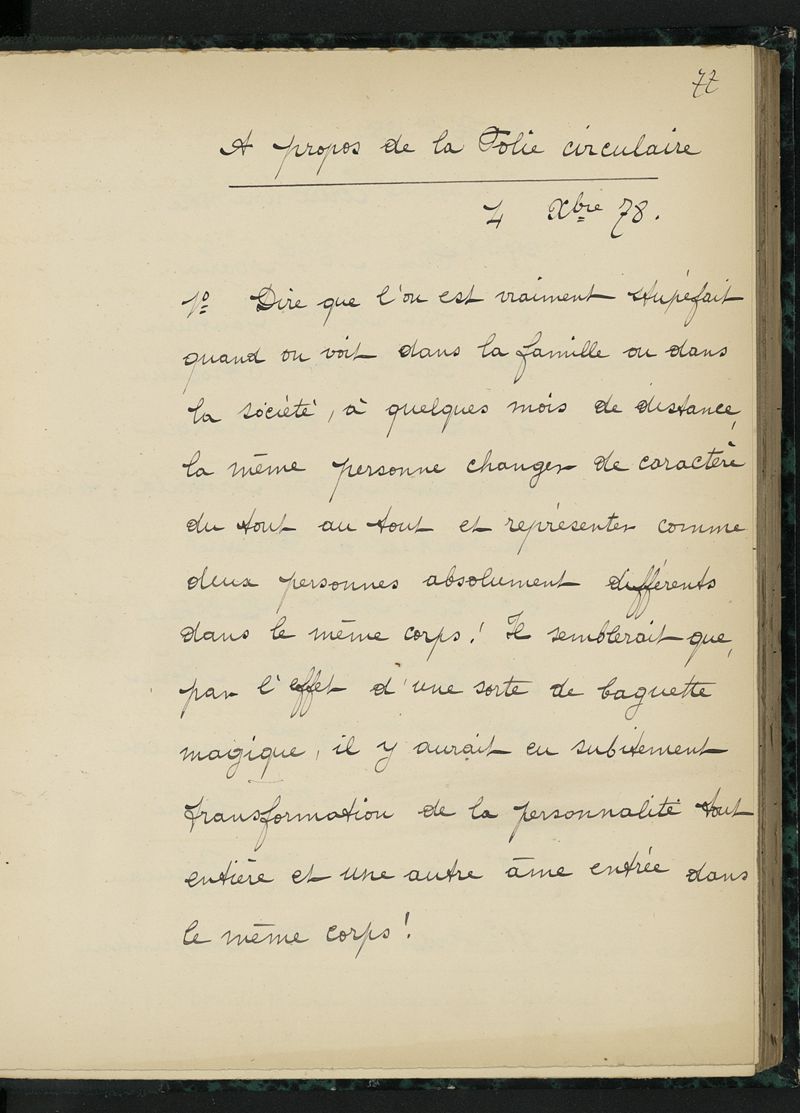 77
A propos de la Folie circulaire
4 Xbre 78.
1º Dire que l'on est vraiment stupéfait
quand on voit dans la famille ou dans
la société, à quelques mois de distance,
la même personne changer de caractère
du tout au tout et représenter comme
deux personnes absolument différents
dans le même corps! Il semblerait que,
par l'effet d'une sorte de baguette
magique, il y aurait eu subitement
transformation de la personnalité tout
entière et une autre âme entrée dans
le même corps!